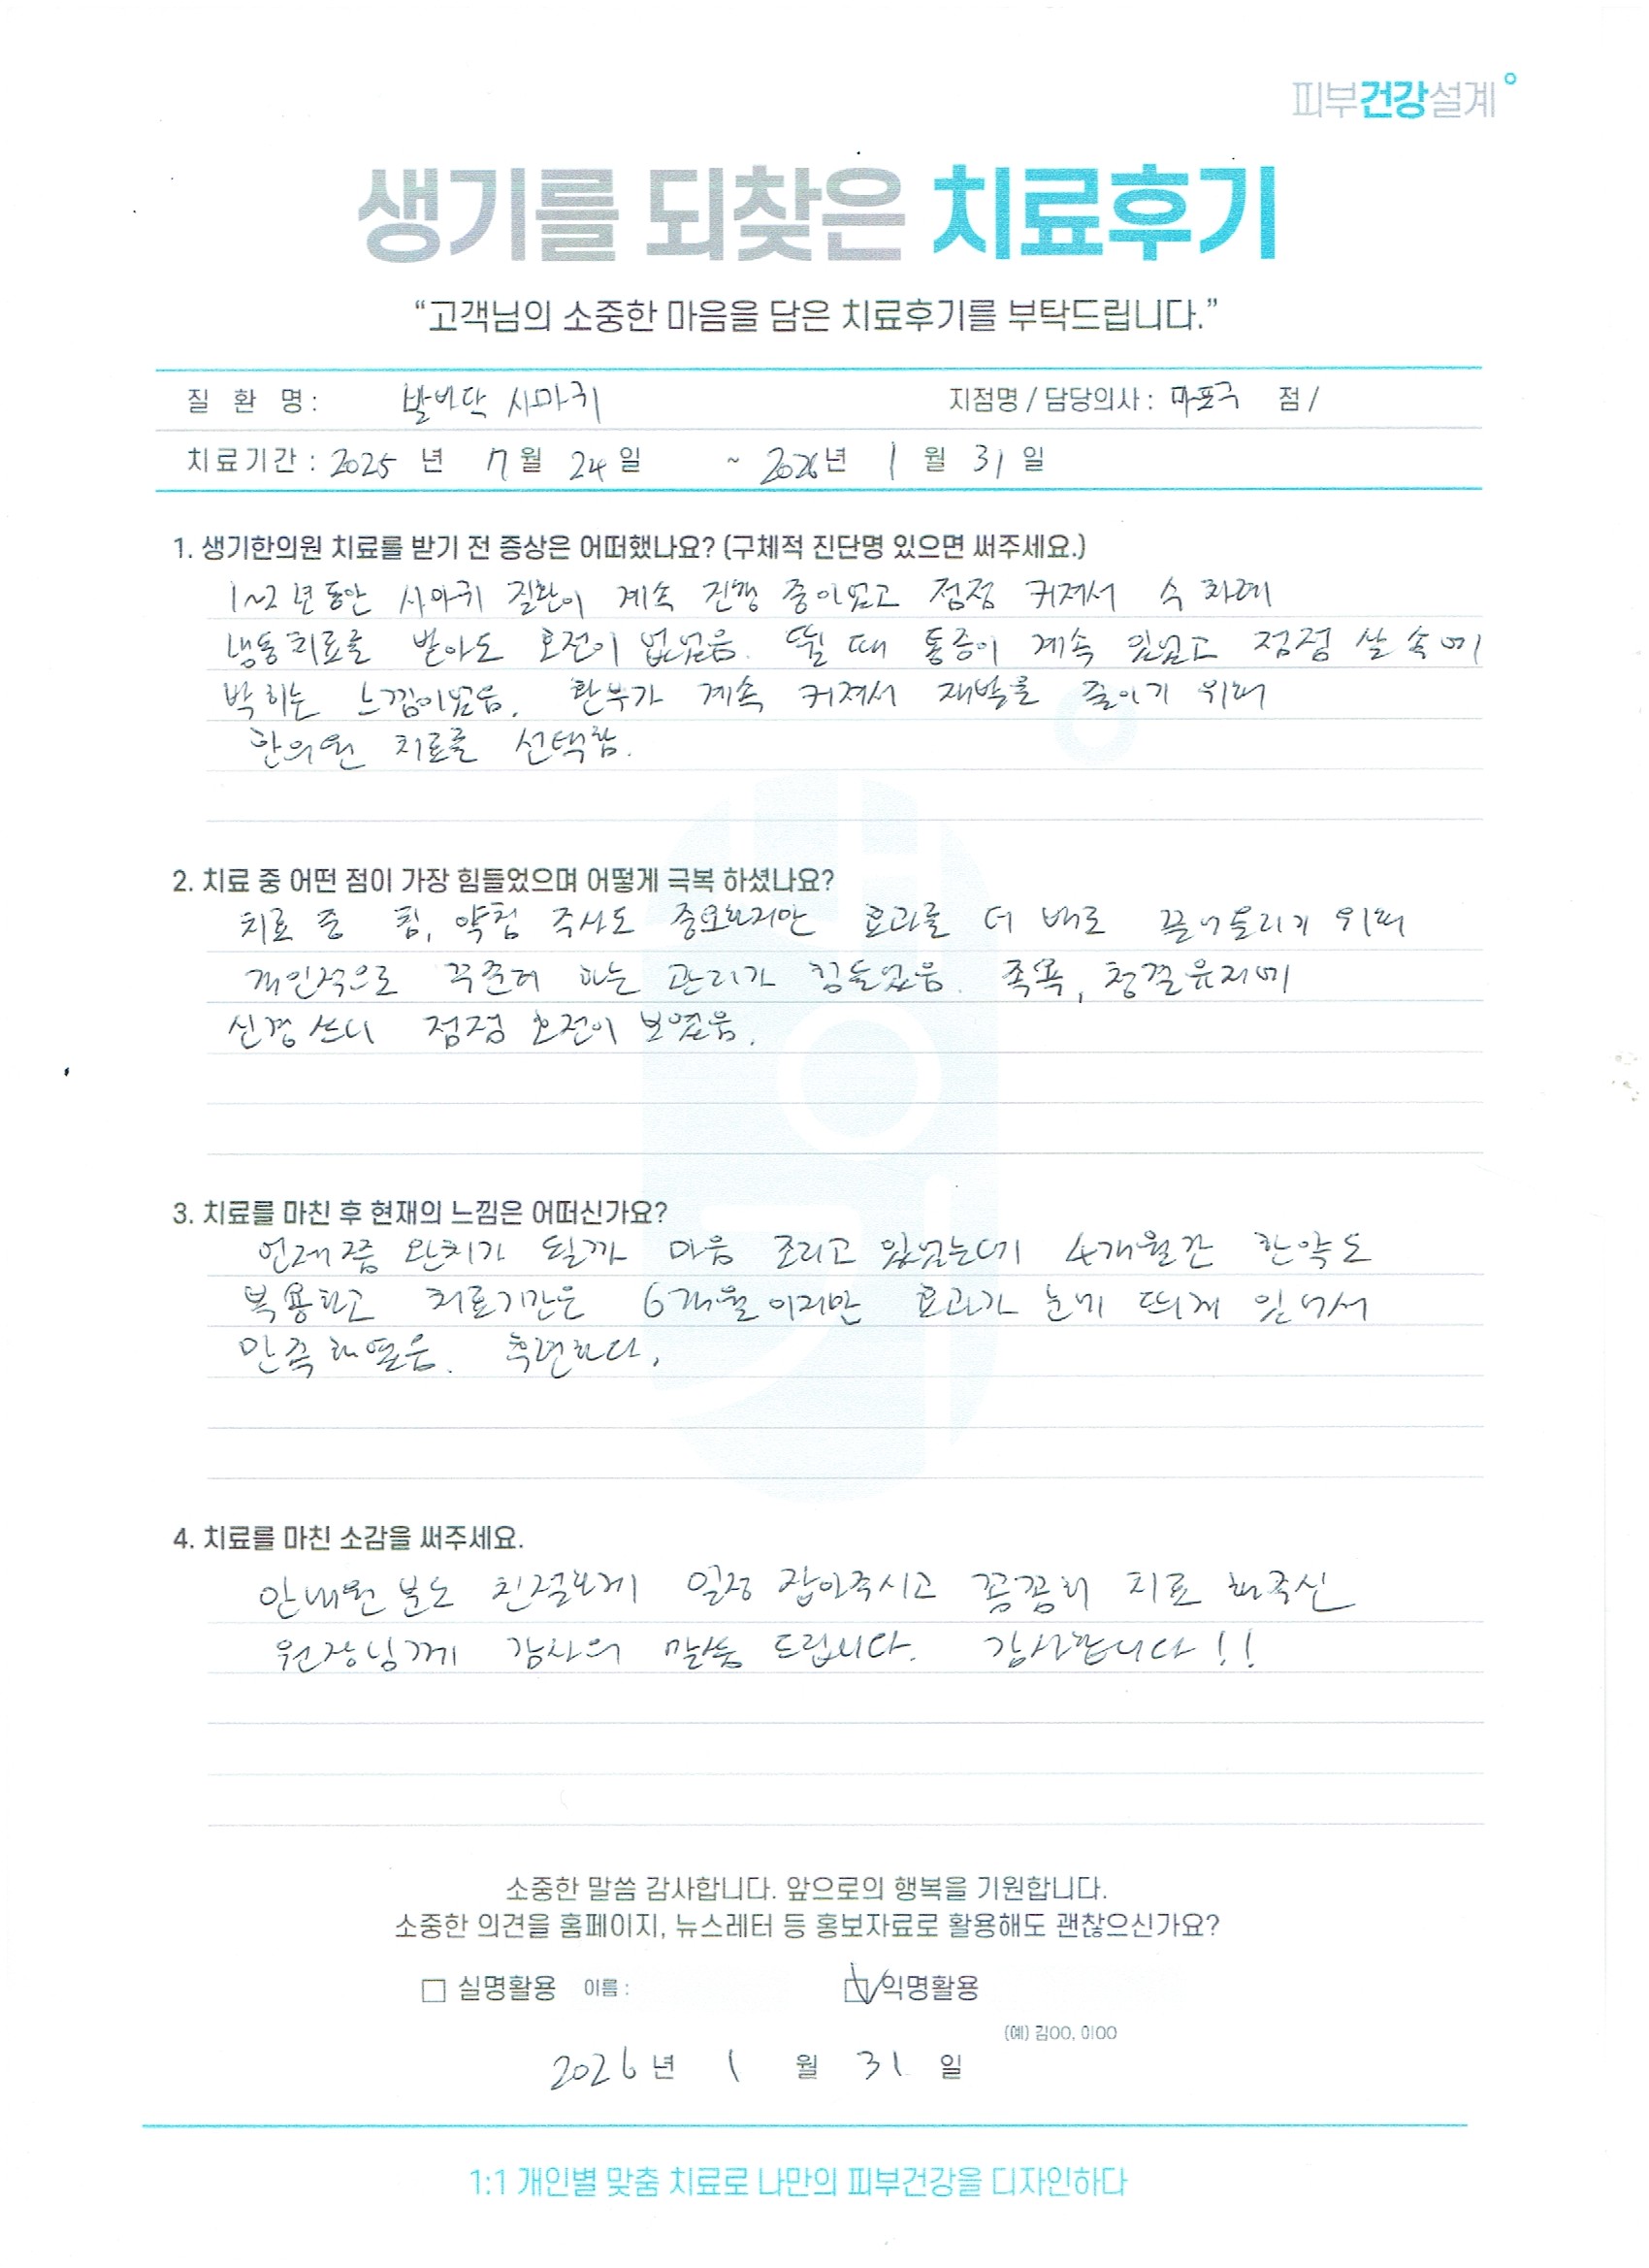 피부건강설계
생기를 되찾은 치료후기
“고객님의 소중한 마음을 담은 치료후기를 부탁드립니다.”
질 환 명 : 발바닥 사마귀 지점명 / 담당의사 : 마포구 점 /
치료기간 : 2025 년 7 월 24 일 ~ 2026 년 1 월 31 일
1. 생기한의원 치료를 받기 전 증상은 어떠했나요? (구체적 진단명 있으면 써주세요.)
1~2년동안 사마귀 질환이 계속 진행 중이였고 점점 커져서 수 차례
냉동치료를 받아도 호전이 없었음. 뛸 때 통증이 계속 있었고 점점 살 속에
박히는 느낌이였음. 환부가 계속 커져서 재발을 줄이기 위해
한의원 치료를 선택함.
2. 치료 중 어떤 점이 가장 힘들었으며 어떻게 극복 하셨나요?
치료 중 침, 약침 주사도 중요하지만 효과를 더 배로 끌어올리기 위해
개인적으로 꾸준히 하는 관리가 힘들었음. 족욕, 청결유지에
신경 쓰니 점점 호전이 보였음.
3. 치료를 마친 후 현재의 느낌은 어떠신가요?
언제쯤 완치가 될까 마음 조리고 있었는데 4개월간 한약도
복용하고 치료기간은 6개월이지만 효과가 눈에 띄게 있어서
만족해했음. 후련하다.
4. 치료를 마친 소감을 써주세요.
안내원 분도 친절하게 일정 잡아주시고 꼼꼼히 치료 해주신
원장님께 감사의 말씀 드립니다. 감사합니다!!
소중한 말씀 감사합니다. 앞으로의 행복을 기원합니다.
소중한 의견을 홈페이지, 뉴스레터 등 홍보자료로 활용해도 괜찮으신가요?
□ 실명활용 이름 : ☑ 익명활용
(예) 김OO, 이OO
2026 년 1 월 31 일
1:1 개인별 맞춤 치료로 나만의 피부건강을 디자인하다
생기